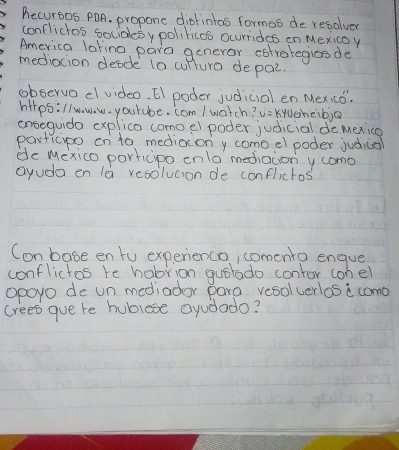 Recursos PDA. propone distintos formas de resolver
conflictos sociales y politicos ocurridos en Mexico y
America latina para generar estrategias de
mediación desde la cultura de paz.
observa el video. El poder judicial en Mexico".
https://www.w.youtube.com/watch?v=
enseguida explica como el poder judicial de Mexico
participo en to mediacion y como el poder judicial
de Mexico participa en la mediacion y como
ayuda en la resolucion de conflictos
Con base en tu experiencia, comenta en que
conflictos te habrian gustado contar con el
apoyo de un mediador para resolverlos ¿ como
crees que te hubiese ayudado?